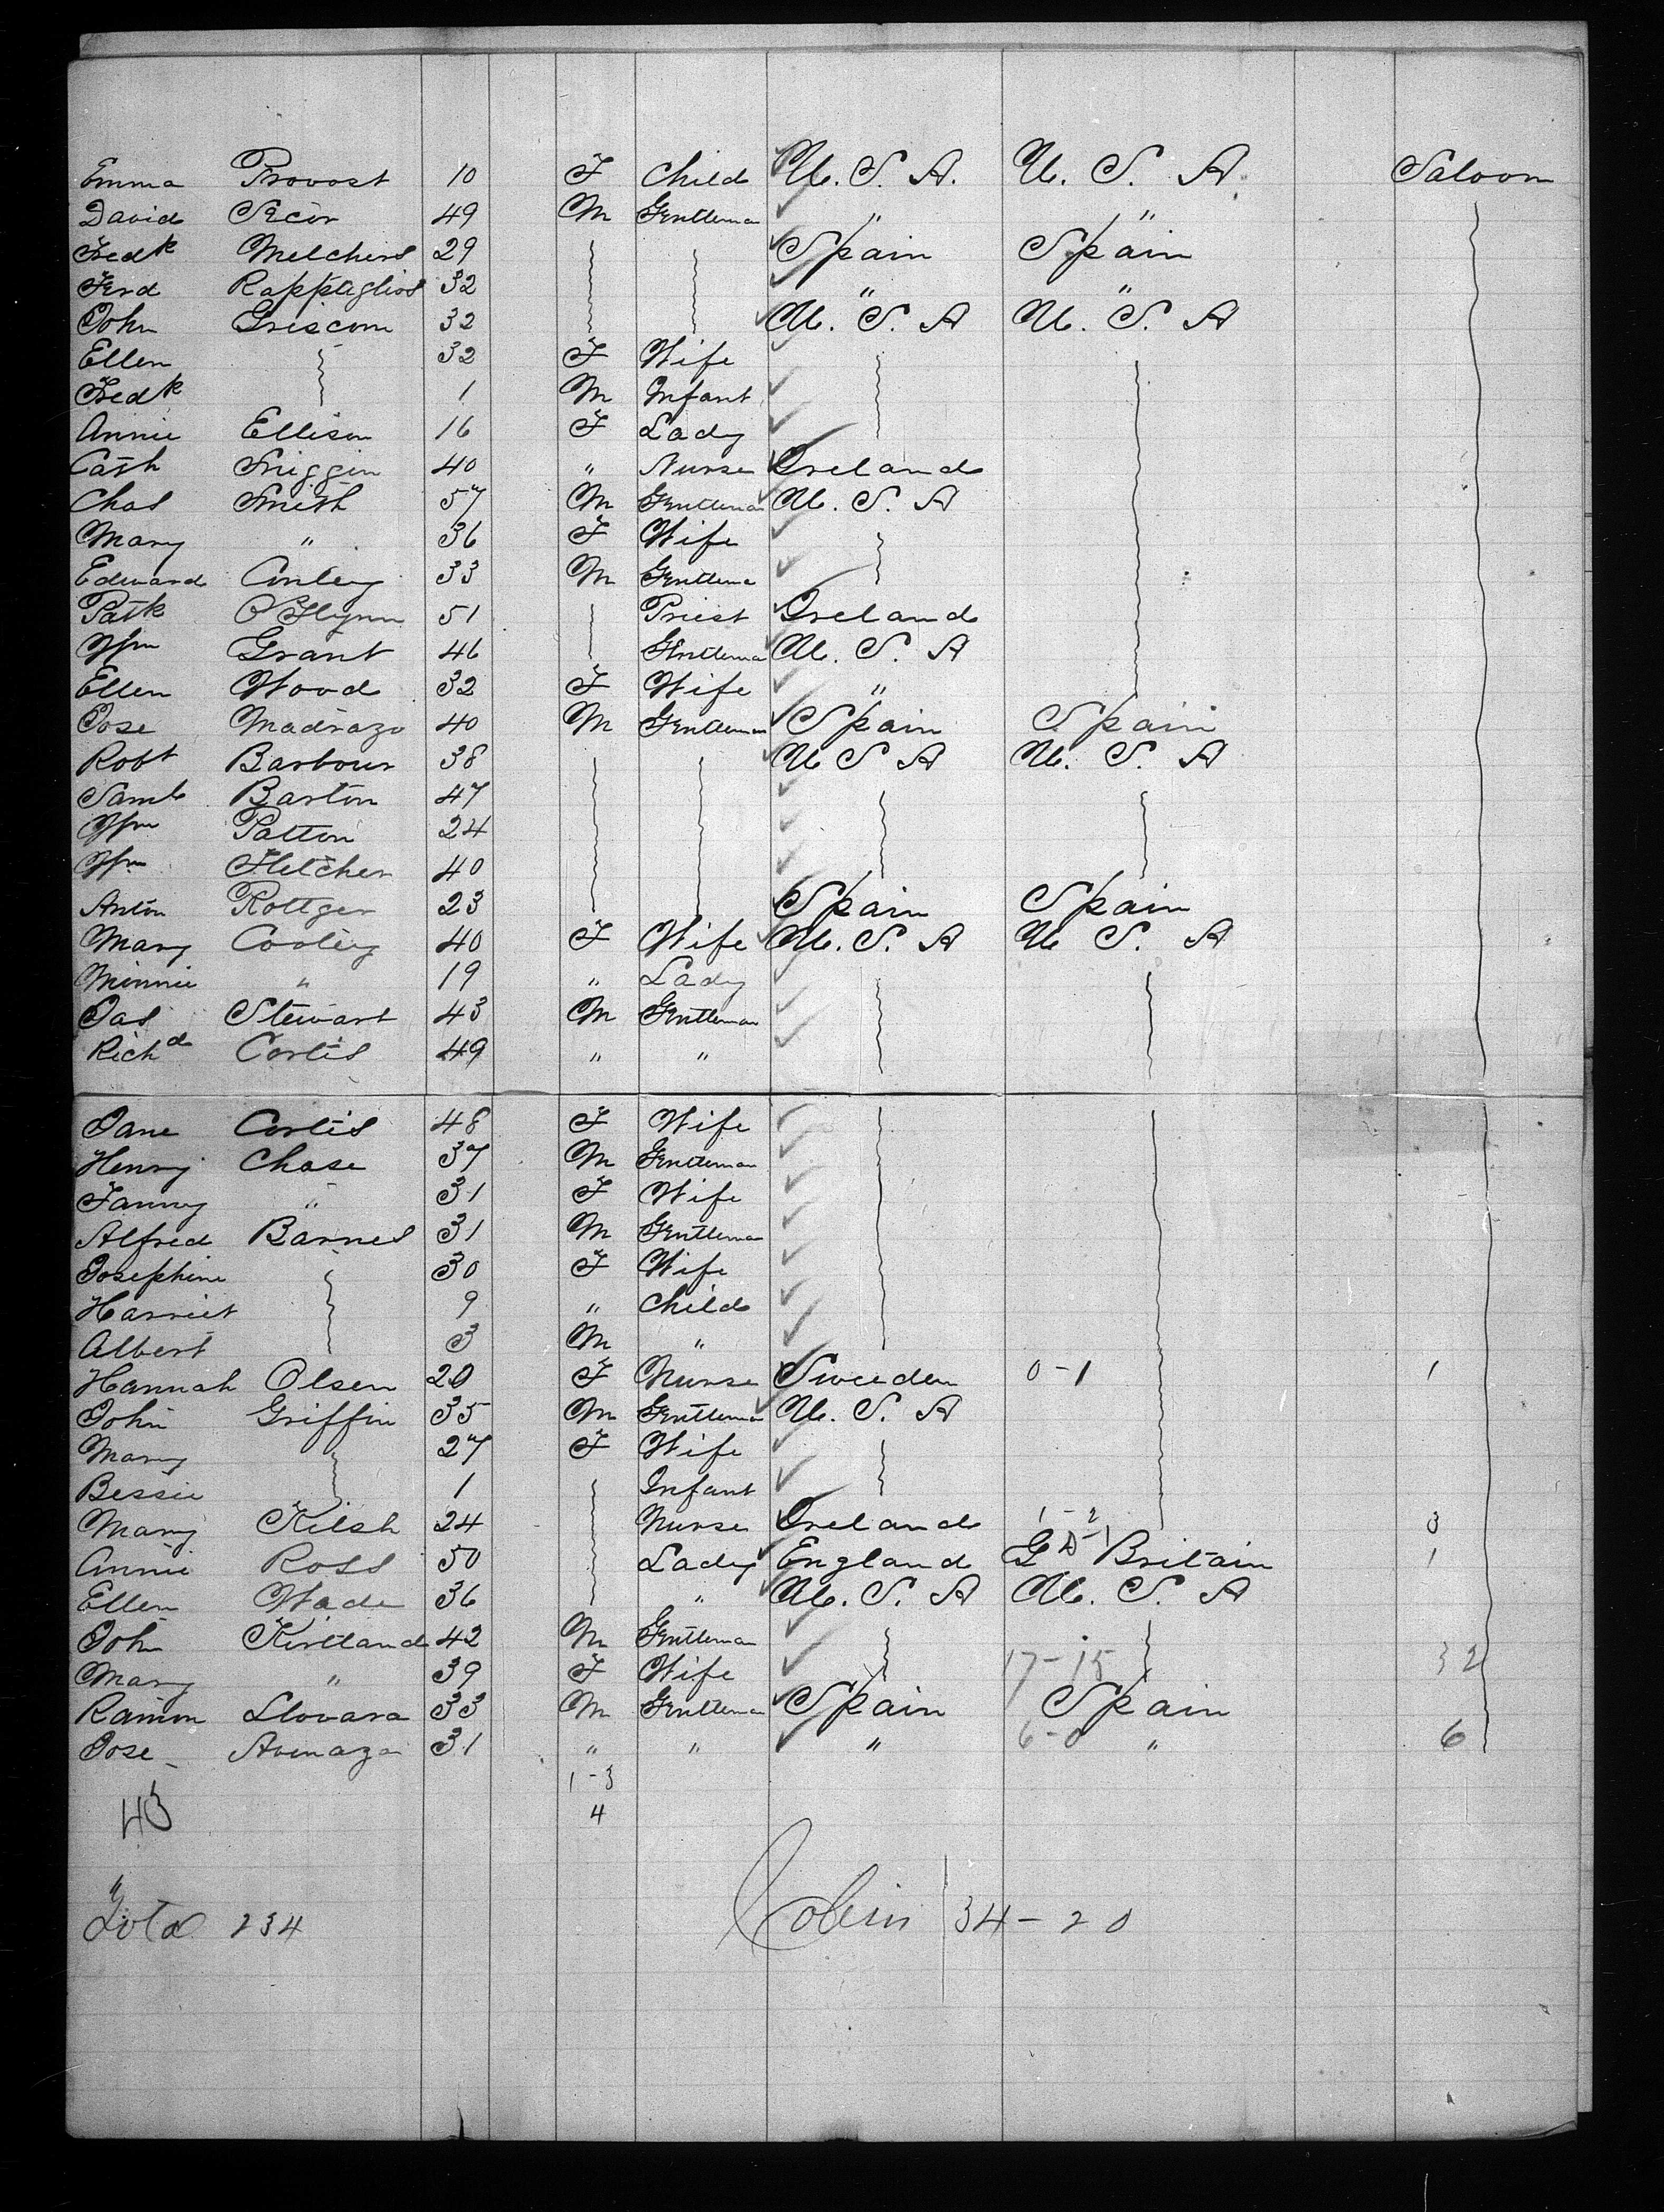 Emma Provost 10 F Child U. S. A. U. S. A. Saloon
David Secor 49 M Gentleman " "
Fredk Melchers 29 Spain Spain
Ferd 32 " "
John Griscom 32 U. S. A U. S. A
Ellen 32 F Wife
Fredk 1 M Infant
Annie Ellison 16 F Lady
Cath 40 " Nurse Ireland
Chas Smith 57 M Gentleman U. S. A
Mary " 36 F Wife
Edward 33 M Gentleman
Patk O'Flynn 51 Priest Ireland
Wm Grant 46 Gentleman U. S. A
Ellen Wood 32 F Wife "
Jose Madrazo 40 M Gentleman Spain Spain
Robt Barbour 38 U S A U. S. A
Saml Barton 47
Wm Patton 24
Wm Fletcher 40
Anton Rottger 23 Spain Spain
Mary Cooley 40 F Wife U. S. A U S. A
Minnie " 19 " Lady
Jas Stewart 43 M Gentleman
Richd Cortis 49 " "
Jane Cortis 48 F Wife
Henry Chase 37 M Gentleman
Fanny " 31 F Wife
Alfred Barnes 31 M Gentleman
Josephine 30 F Wife
Harriet 9 " Child
Albert 3 M "
Hannah Olsen 20 F Nurse Sweeden 0-1 1
John Griffin 35 M Gentleman U. S. A
Mary 27 F Wife
Bessie 1 Infant
Mary 24 Nurse Ireland 1-2 3
Annie Ross 50 Lady England Gt Britain 1
Ellen Wade 36 " U. S. A U. S. A
John Kirtland 42 M Gentleman
Mary " 39 F Wife 17-15 32
Ramon Llovara 33 M Gentleman Spain Spain
Jose 31 " " " 6-0 " 6
1-3
43 4
Total 234 Cabin 34-20